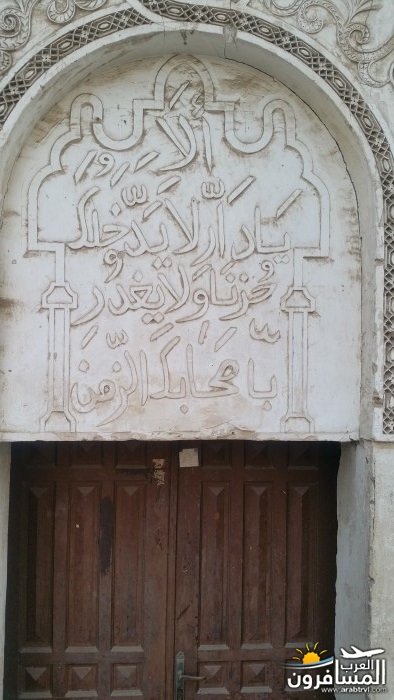 ألا
يَا دَارُ لا يَدْخُلْكِ
حُزْنٌ وَلا يَغْدِرْ
بأصحابك الزمن
العرب
المسافرون
www.arabtrvl.com